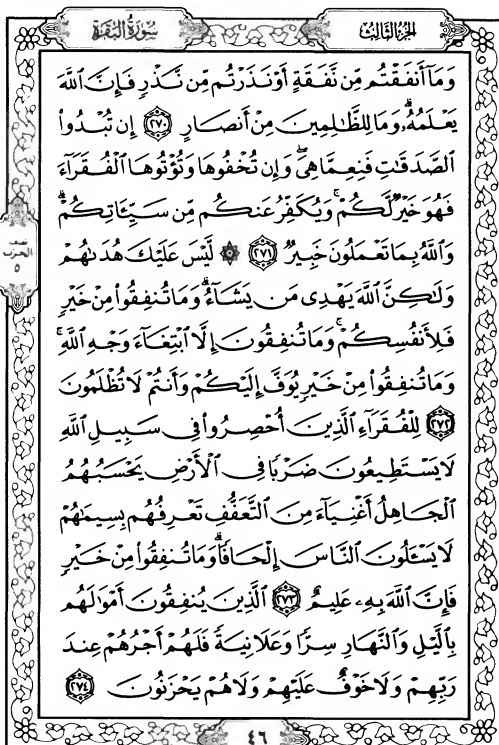 سُورَةُ البَقَرَة
الجُزءُ الثَّالِث
وَمَآ أَنفَقۡتُم مِّن نَّفَقَةٍ أَوۡ نَذَرۡتُم مِّن نَّذۡرٖ فَإِنَّ ٱللَّهَ
يَعۡلَمُهُۥۗ وَمَا لِلظَّٰلِمِينَ مِنۡ أَنصَارٍ ٢٧٠ إِن تُبۡدُواْ
ٱلصَّدَقَٰتِ فَنِعِمَّا هِيَۖ وَإِن تُخۡفُوهَا وَتُؤۡتُوهَا ٱلۡفُقَرَآءَ
فَهُوَ خَيۡرٞ لَّكُمۡۚ وَيُكَفِّرُ عَنكُم مِّن سَيِّـَٔاتِكُمۡۗ
وَٱللَّهُ بِمَا تَعۡمَلُونَ خَبِيرٞ ٢٧١ ۞ لَّيۡسَ عَلَيۡكَ هُدَىٰهُمۡ
وَلَٰكِنَّ ٱللَّهَ يَهۡدِي مَن يَشَآءُۗ وَمَا تُنفِقُواْ مِنۡ خَيۡرٖ
فَلِأَنفُسِكُمۡۚ وَمَا تُنفِقُونَ إِلَّا ٱبۡتِغَآءَ وَجۡهِ ٱللَّهِۚ
وَمَا تُنفِقُواْ مِنۡ خَيۡرٖ يُوَفَّ إِلَيۡكُمۡ وَأَنتُمۡ لَا تُظۡلَمُونَ
٢٧٢ لِلۡفُقَرَآءِ ٱلَّذِينَ أُحۡصِرُواْ فِي سَبِيلِ ٱللَّهِ
لَا يَسۡتَطِيعُونَ ضَرۡبٗا فِي ٱلۡأَرۡضِ يَحۡسَبُهُمُ
ٱلۡجَاهِلُ أَغۡنِيَآءَ مِنَ ٱلتَّعَفُّفِ تَعۡرِفُهُم بِسِيمَٰهُمۡ
لَا يَسۡـَٔلُونَ ٱلنَّاسَ إِلۡحَافٗاۗ وَمَا تُنفِقُواْ مِنۡ خَيۡرٖ
فَإِنَّ ٱللَّهَ بِهِۦ عَلِيمٌ ٢٧٣ ٱلَّذِينَ يُنفِقُونَ أَمۡوَٰلَهُم
بِٱلَّيۡلِ وَٱلنَّهَارِ سِرّٗا وَعَلَانِيَةٗ فَلَهُمۡ أَجۡرُهُمۡ عِندَ
رَبِّهِمۡ وَلَا خَوۡفٌ عَلَيۡهِمۡ وَلَا هُمۡ يَحۡزَنُونَ ٢٧٤
٤٦
الحزب
٥